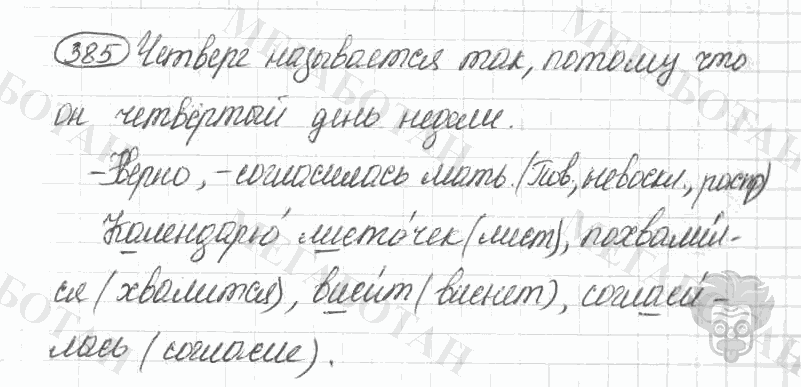 385 Четверг называется так, потому что
он четвёртый день недели.
- Верно, - согласилась мать. (Пов., невоскл., распр)
Календарю́ листо́чек (лист), похвали́л-
ся (хвалится), виси́т (виснет), согласи́-
лась (согласие).
МЕГАБОТАН